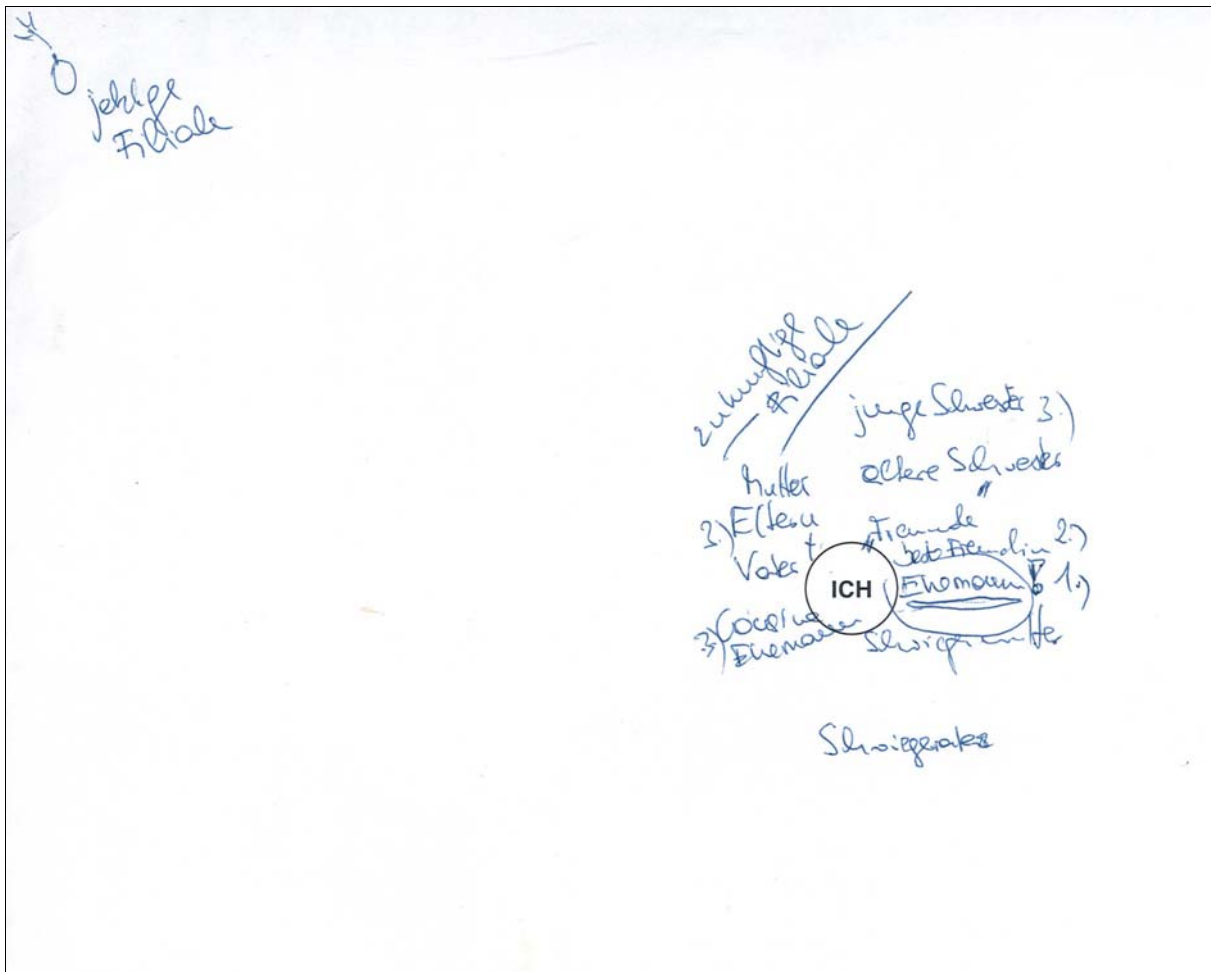 jetzige
Filiale
zukünftige
Filiale
junge Schwester 3.)
ältere Schwester
"
Mutter
3.) Eltern
Vater †
Freunde
" beste Freundin 2.)
ICH
Ehemann ! 1.)
3.) Cousine
Ehemann
Schwiegermutter
Schwiegervater